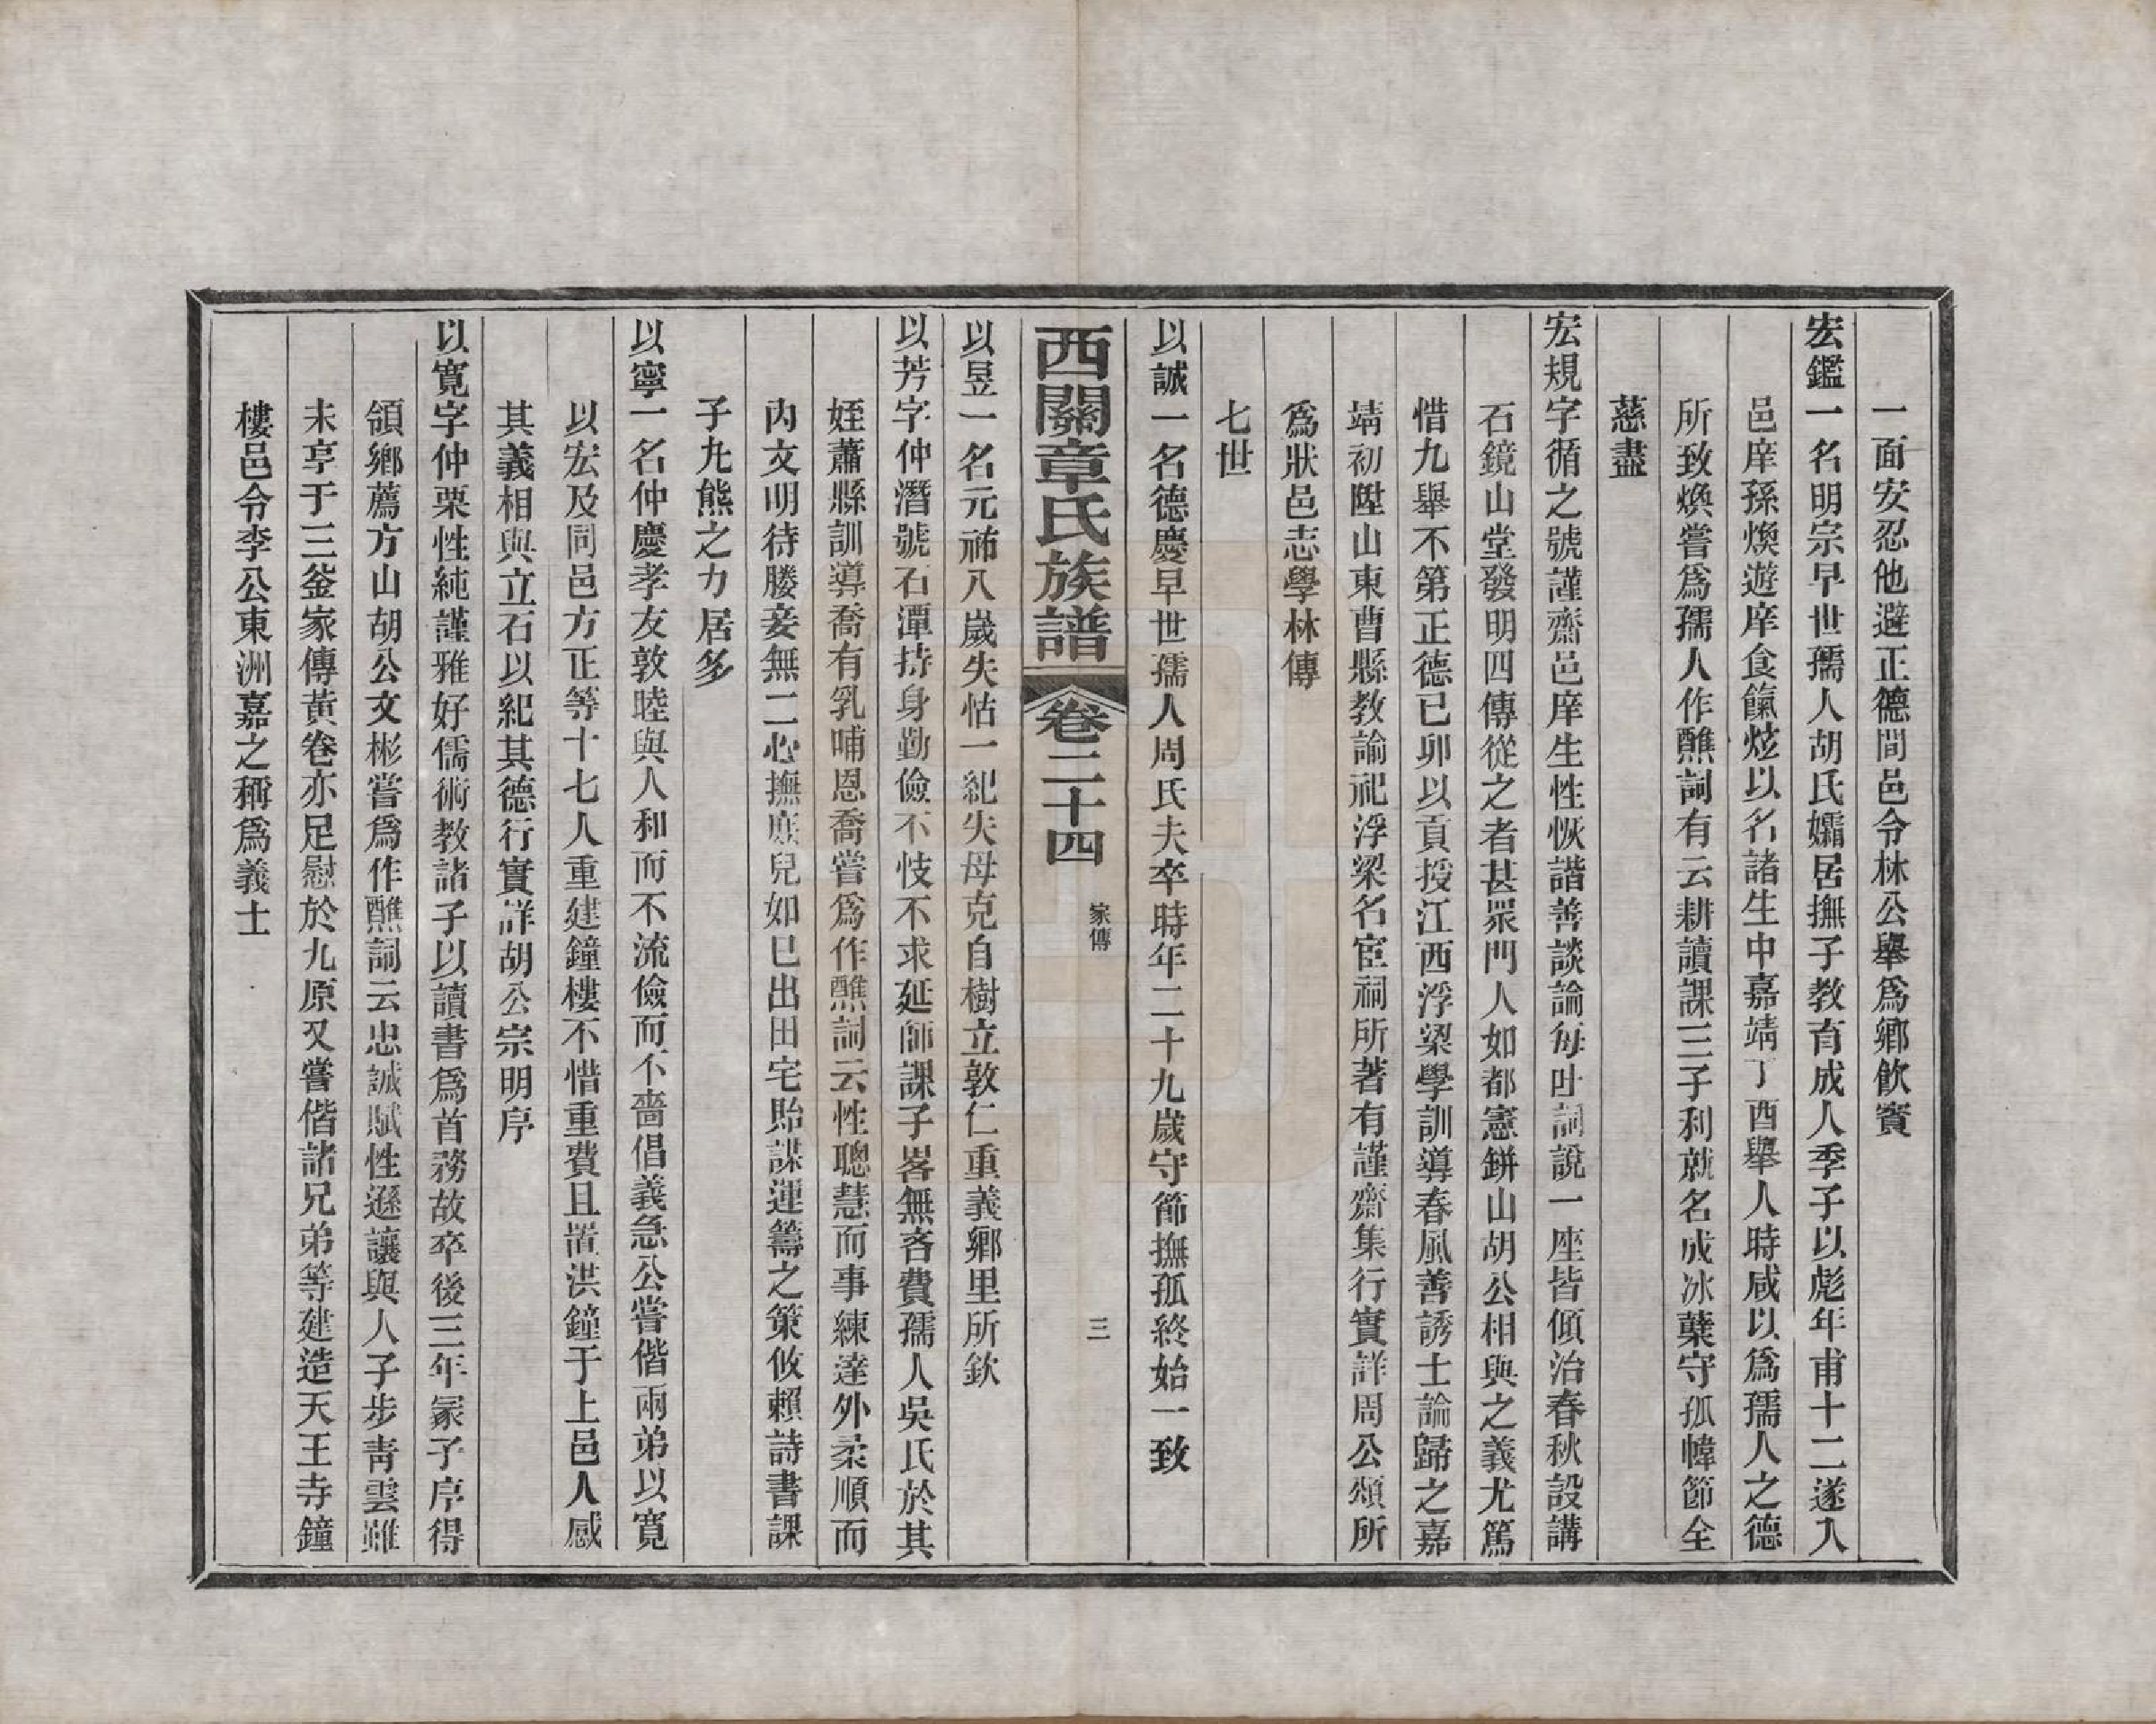 一面安忍他避正德間邑令林公舉爲鄉飲賓
宏鑑一名明宗早世孺人胡氏孀居撫子教育成人季子以彪年甫十二遂入
邑庠孫煥遊庠食餼炫以名諸生中嘉靖丁酉舉人時咸以爲孺人之德
所致煥嘗爲孺人作醮詞有云耕讀課三子利就名成冰蘖守孤幃節全
慈盡
宏規字循之號謹齋邑庠生性恢諧善談論每吐詞說一座皆傾治春秋設講
石鏡山堂發明四傳從之者甚眾門人如都憲鉼山胡公相與之義尤篤
惜九舉不第正德已卯以貢授江西浮梁學訓導春風善誘士論歸之嘉
靖初陞山東曹縣教諭祀浮梁名宦祠所著有謹齋集行實詳周公頌所
爲狀邑志學林傳
七世
以誠一名德慶早世孺人周氏夫卒時年二十九歲守節撫孤終始一致
西關章氏族譜 卷二十四 家傳 三
以昱一名元祐八歲失怙一紀失母克自樹立敦仁重義鄉里所欽
以芳字仲潛號石潭持身勤儉不忮不求延師課子畧無吝費孺人吳氏於其
姪蕭縣訓導喬有乳哺恩喬嘗爲作醮詞云性聰慧而事練達外柔順而
內文明待媵妾無二心撫庶兒如已出田宅貽謀運籌之策攸賴詩書課
子九熊之力居多
以寧一名仲慶孝友敦睦與人和而不流儉而不嗇倡義急公嘗偕兩弟以寬
以宏及同邑方正等十七人重建鐘樓不惜重費且置洪鐘于上邑人感
其義相與立石以紀其德行實詳胡公宗明序
以寬字仲栗性純謹雅好儒術教諸子以讀書爲首務故卒後三年冢子序得
領鄉薦方山胡公文彬嘗爲作醮詞云忠誠賦性遜讓與人子步靑雲雖
未享于三釜家傳黃卷亦足慰於九原又嘗偕諸兄弟等建造天王寺鐘
樓邑令李公東洲嘉之稱爲義士